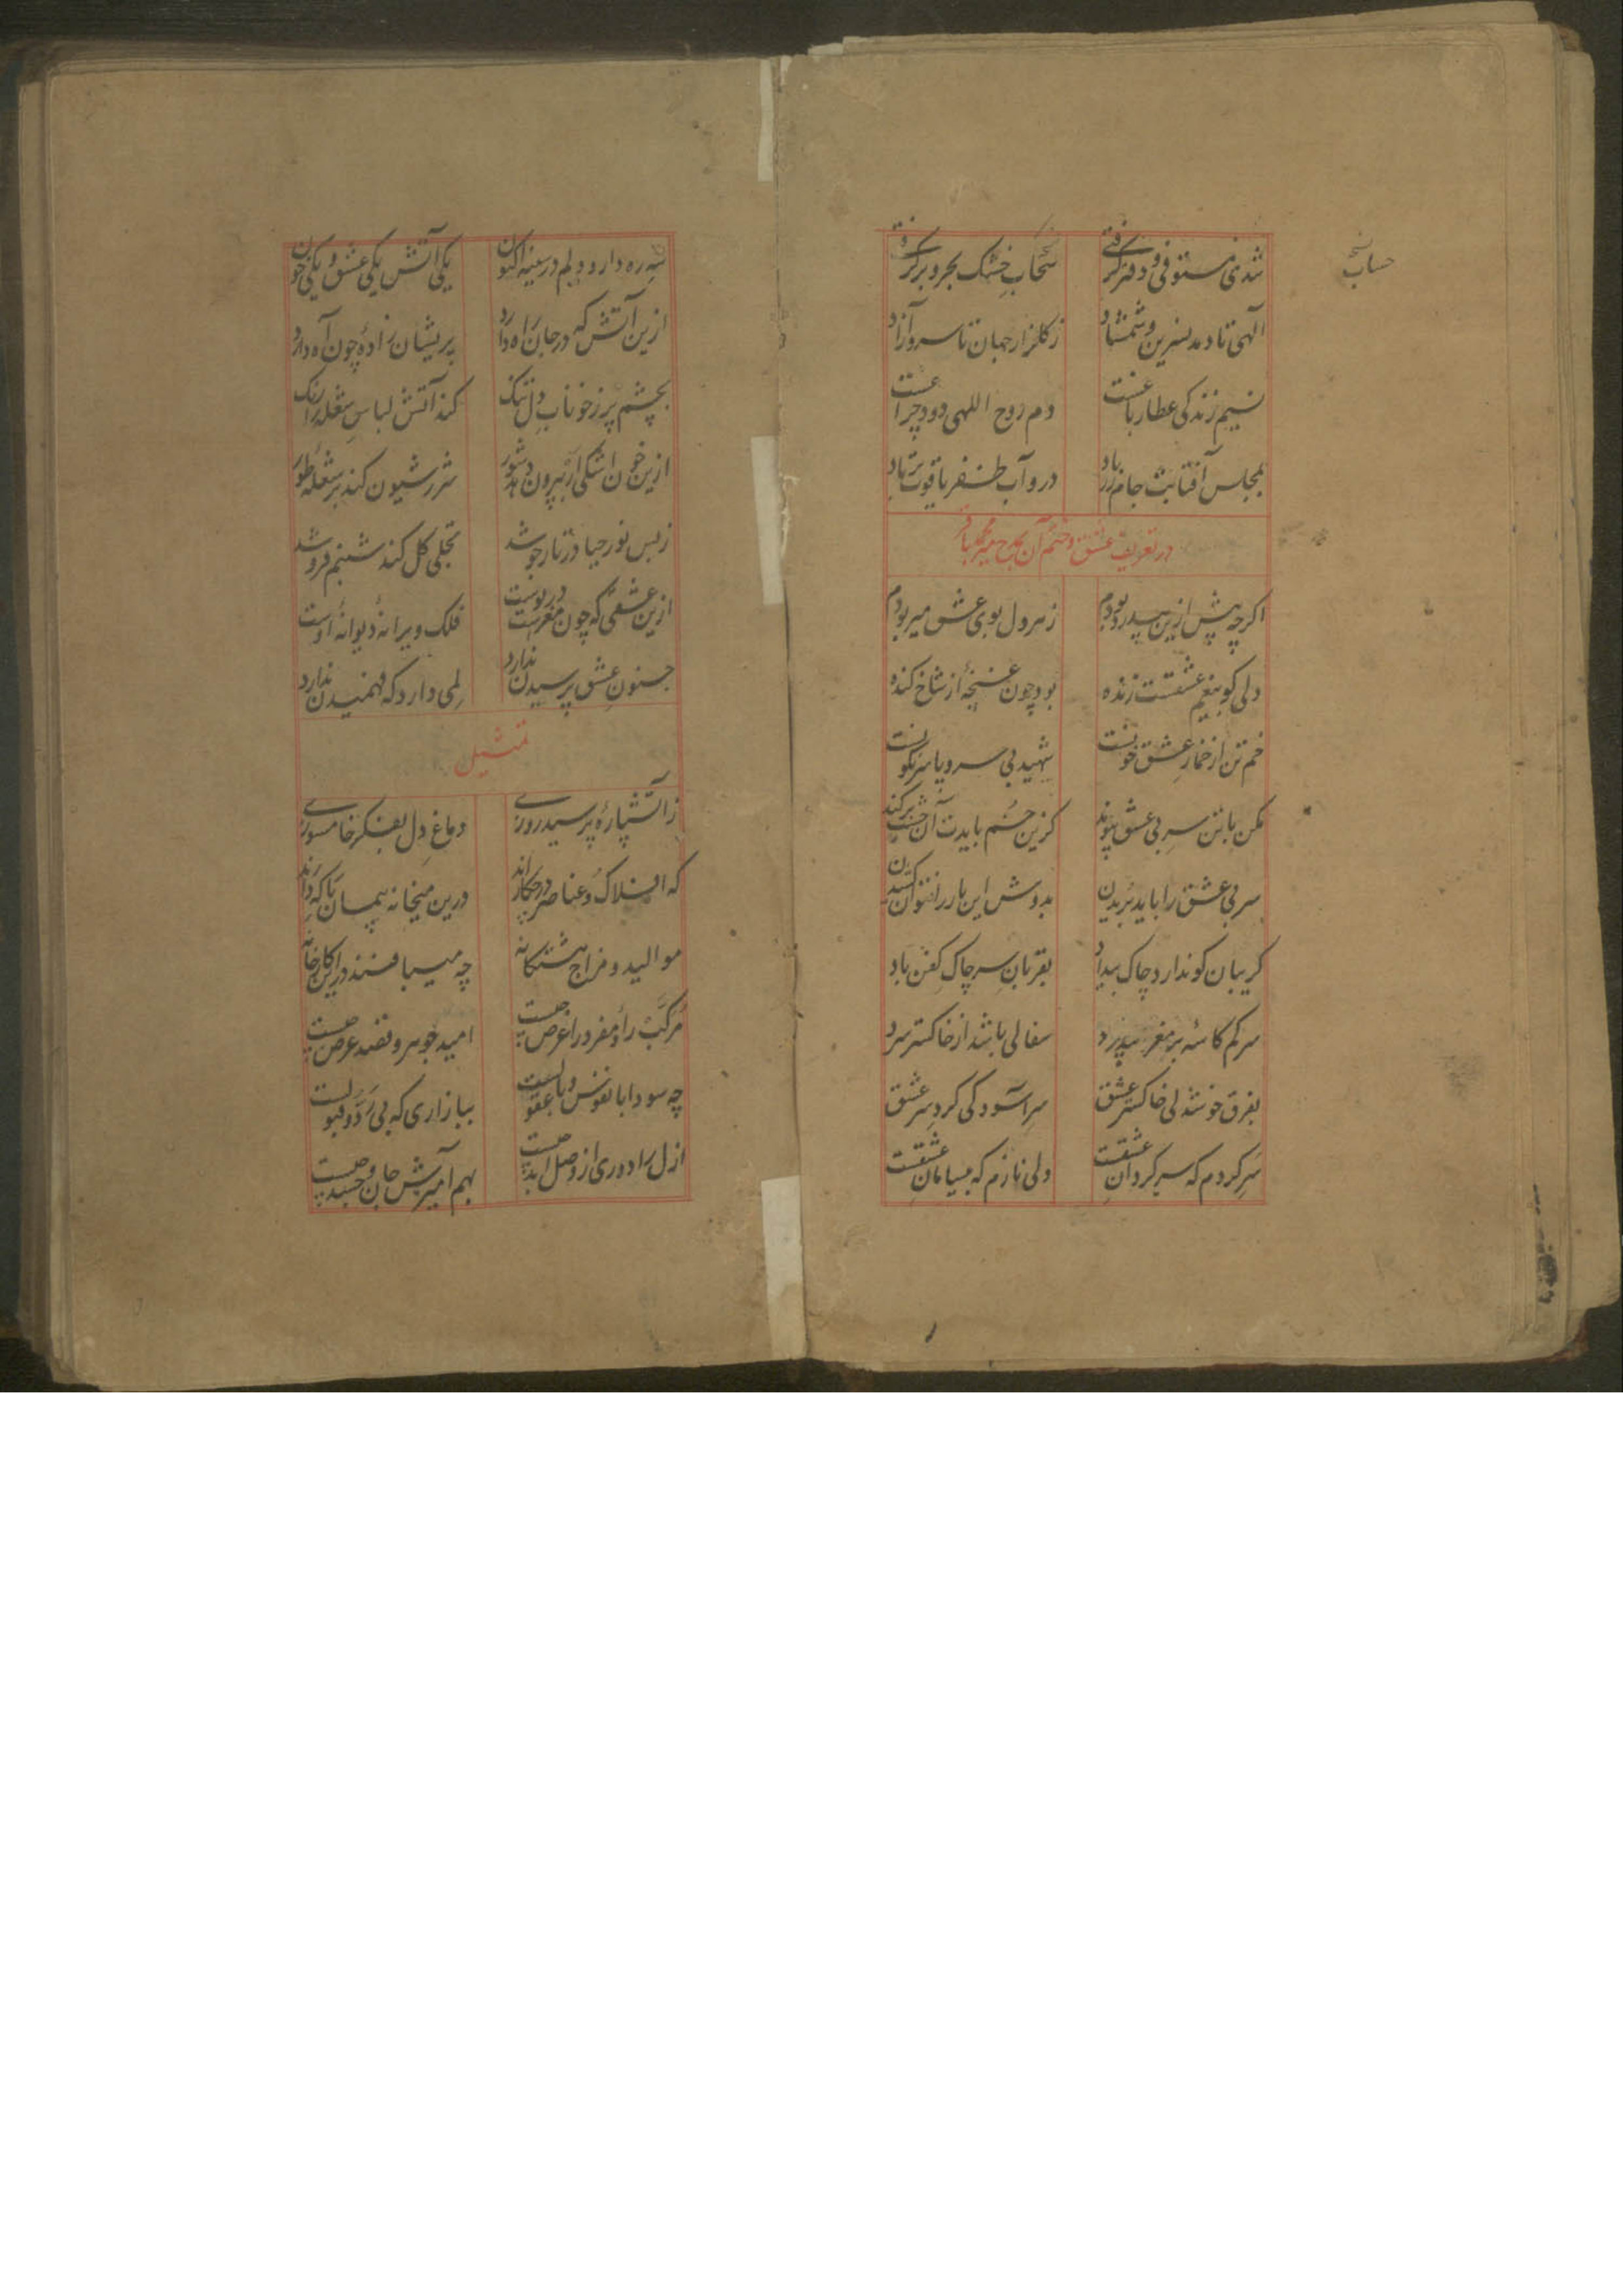 حساب نسخه
شدی مستوفی و دفتر گرفتی
سحاب خشک بحر و بر گرفتی
الهی تا دمد نسرین و شمشاد
ز گلزار جهان تا سرو آزاد
نسیم زندگی عطار باغت
دم روح اللهی دود چراغت
بمجلس آفتابت جام زر باد
در و آب ظفر یاقوت تر باد
در تعریف عشق و ختم آن بمدح میر محمد باقر
اگرچه پیش ازین بیدرد بودم
ز هر دل بوی عشق میربودم
دلی کو بیغم عشقست زنده
بود چون غنچهٔ از شاخ کنده
خم تن از خمار عشق خونست
شهید بی سر و پا سرنگونست
مکن با تن سر بی عشق پیوند
کزین جسم بایدت آن برکند
سر بی عشق را باید بریدن
بدوش این بار را نتوان کشیدن
گریبان کو ندارد چاک بیداد
بقربان سر چاک کفن باد
سرکم کاسه پر مغز بیدرد
سفالی باشد از خاکستر سرد
بفرق خوشدلی خاکستر عشق
سر آسودگی گرد سر عشق
سر گردم که سرگردان عشقست
ولی نازم که بیسامان عشقست
سه ره دارد دلم در سینه اکنون
یکی آتش یکی عشق و یکی خون
ازین آتش که در جان راه دارد
پریشان زادهٔ چون آه دارد
بچشم پر ز خوناب دل تنگ
کند آتش لباس شعله را رنگ
ازین خون اشکی ار بیرون دهد شور
شرر شیون کند بر شعلهٔ طور
ز بس نور حیا در نار جوشد
تجلی گل کند شبنم فروشد
ازین عشقی که چون مغزست در پوست
فلک ویرانهٔ دیوانهٔ اوست
جنون عشق پرسیدن ندارد
لمی دارد که فهمیدن ندارد
تمثیل
ز آتشپارهٔ پرسید روزی
دماغ دل بفکر خام سوزی
که افلاک و عناصر در چکارند
درین میخانه پیمان با که دارند
موالید و مزاج هشتگانه
چه میبافند در این کارخانه
مرکب را و مفرد را غرض چیست
امید جوهر و قصد عرض چیست
چه سودا با نفوس و با عقولست
ببازاری که بی رد و قبولست
ازل را دوری از وصل ابد چیست
بهم آمیزش جان و جسد چیست